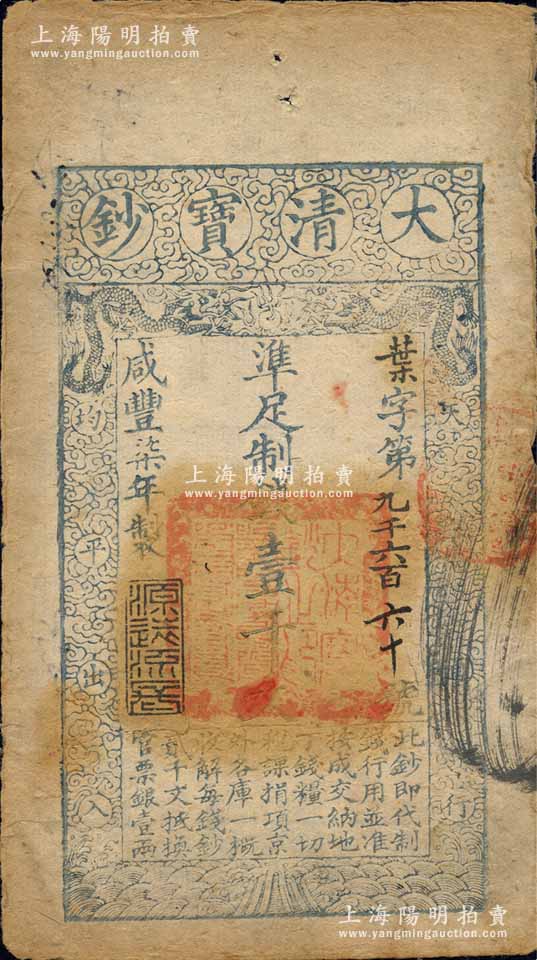 上海陽明拍賣
www.yangmingauction.com
大清寶鈔
天
行
葉字第九千六百六十號
準足制錢壹千
上海陽明拍賣
www.yangmingauction.com
咸豐柒年製
均平出入
源遠流長
此鈔即代制
錢行用並准
按成交納地
丁錢糧一切
稅課捐項京
外各庫一概
收解每錢鈔
貳千文抵換
官票銀壹兩
上海陽明拍賣
www.yangmingauction.com